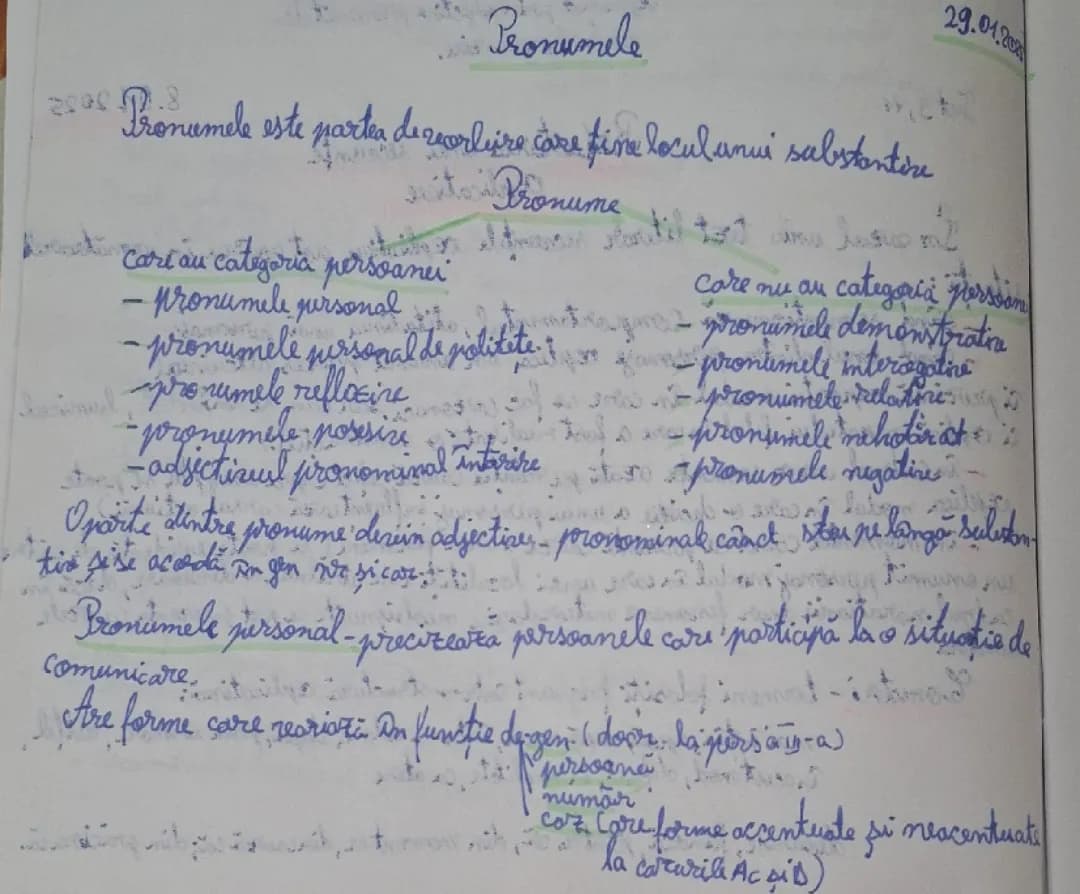 Pronumele
29.01.2025
Pronumele este partea de vorbire care ține locul unui substantiv
Pronume
care au categoria persoanei
- pronumele personal
- pronumele personal de politețe
- pronumele reflexiv
- pronumele posesiv
- adjectivul pronominal întărire
care nu au categoria persoanei
- pronumele demonstrativ
- pronumele interogativ
- pronumele relativ
- pronumele nehotărât
- pronumele negativ
O parte dintre pronume devin adjective pronominale când stau pe lângă substan-
tiv și se acordă în gen nr și caz.
Pronumele personal - precizează persoanele care participă la o situație de
comunicare.
Are forme care variază în funcție de gen (doar la pers a III-a)
persoană
număr
caz (are forme accentuate și neaccentuate
la cazurile Ac și D)